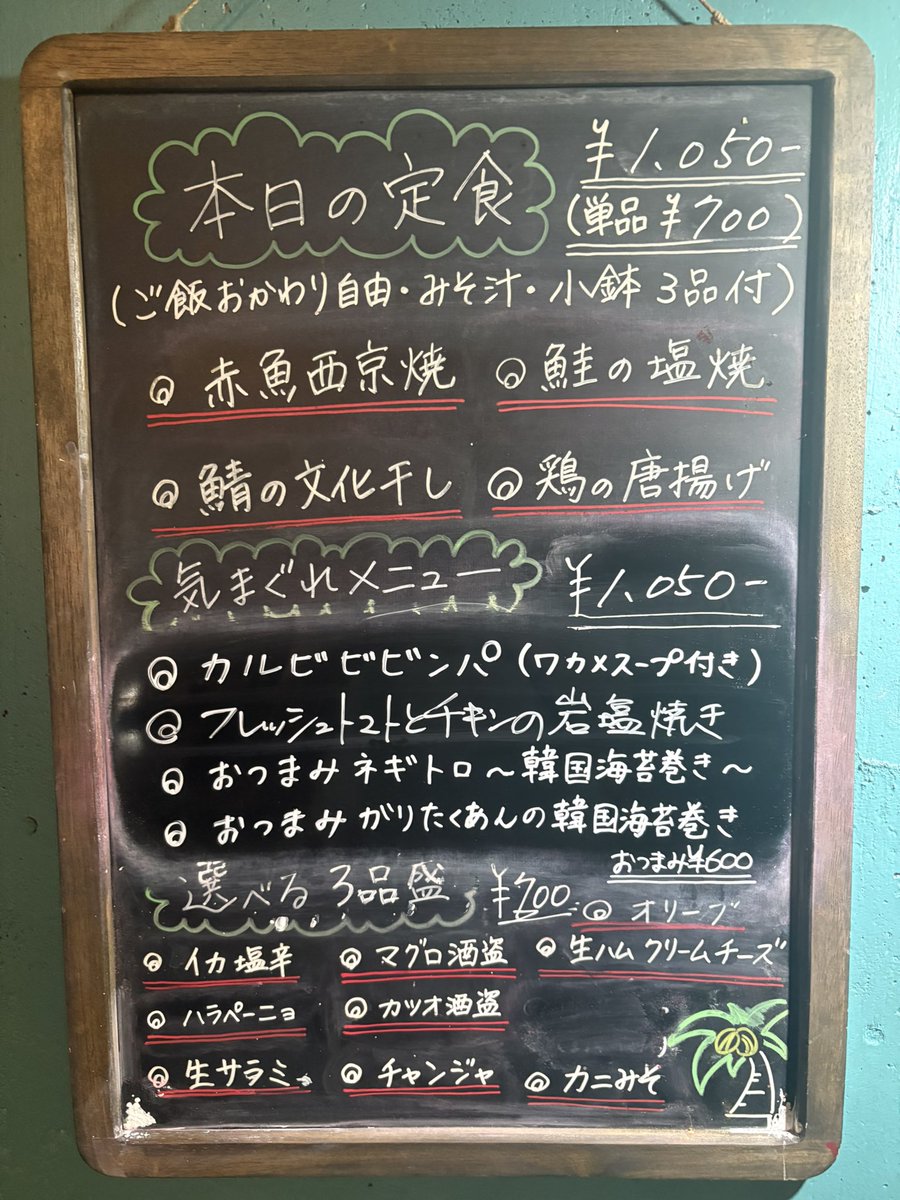 本日の定食 ¥1,050-
(単品 ¥700)
(ご飯おかわり自由・みそ汁・小鉢 3品付)
赤魚西京焼 鮭の塩焼
鯖の文化干し 鶏の唐揚げ
気まぐれメニュー ¥1,050-
カルビビビンパ(ワカメスープ付き)
フレッシュトマトとチキンの岩塩焼き
おつまみネギトロ～韓国海苔巻き～
おつまみがりたくあんの韓国海苔巻き
おつまみ¥600
選べる3品盛 ¥700 オリーブ
イカ塩辛 マグロ酒盗 生ハムクリームチーズ
ハラペーニョ カツオ酒盗
生サラミ チャンジャ カニみそ